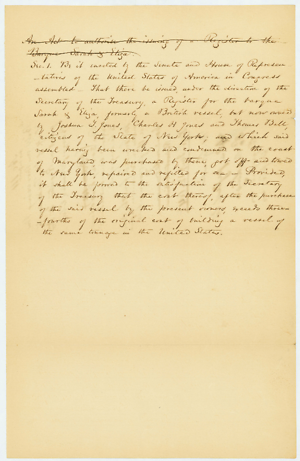 An Act to authorize the issuing of a Register to the
Barque Sarah & Eliza
Sec. 1. Be it enacted by the Senate and House of Represen
tatives of the United States of America in Congress
assembled. That there be issued, under the direction of the
Secretary of the Treasury, a Register for the barque
Sarah & Eliza, formerly a British vessel, but now owned
by Joshua T. Jones, Charles H. Jones and Thomas Bell,
citizens of the State of New York, and which said
vessel having been wrecked and condemned on the coast
of Maryland, was purchased by them, got off and towed
to New York, repaired and refitted for sea – Provided,
it shall be proved to the satisfaction of the Secretary
of the Treasury that the cost thereof, after the purchase
of the said vessel by the present owners exceeds three-
fourths of the original cost of building a vessel of
the same tonnage in the United States.